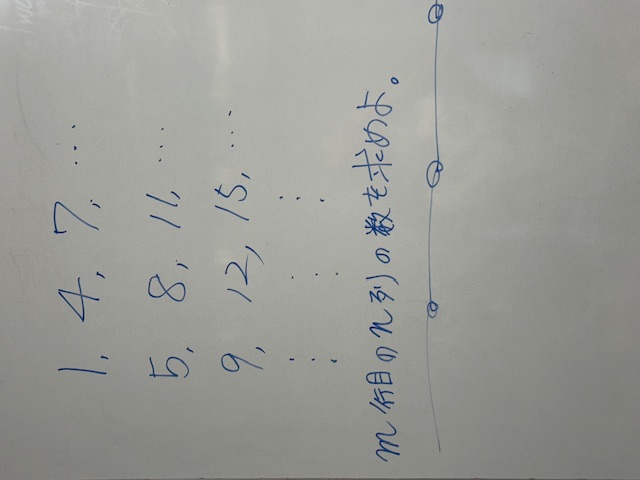 1, 4, 7, ...
5, 8, 11, ...
9, 12, 15, ...
⋮ ⋮ ⋮
m行目のn列の数を求めよ。